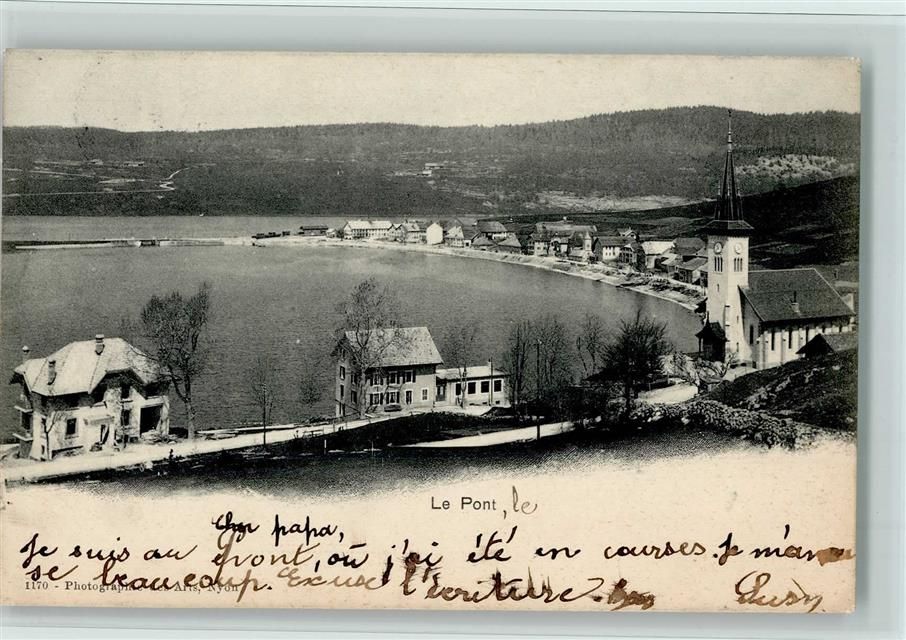 Le Pont, le
Cher papa,
Je suis au pont, où j'ai été en courses. Je m'amu
se beaucoup. Excuse l'écriture.
1170 - Photographie des Arts, Nyon